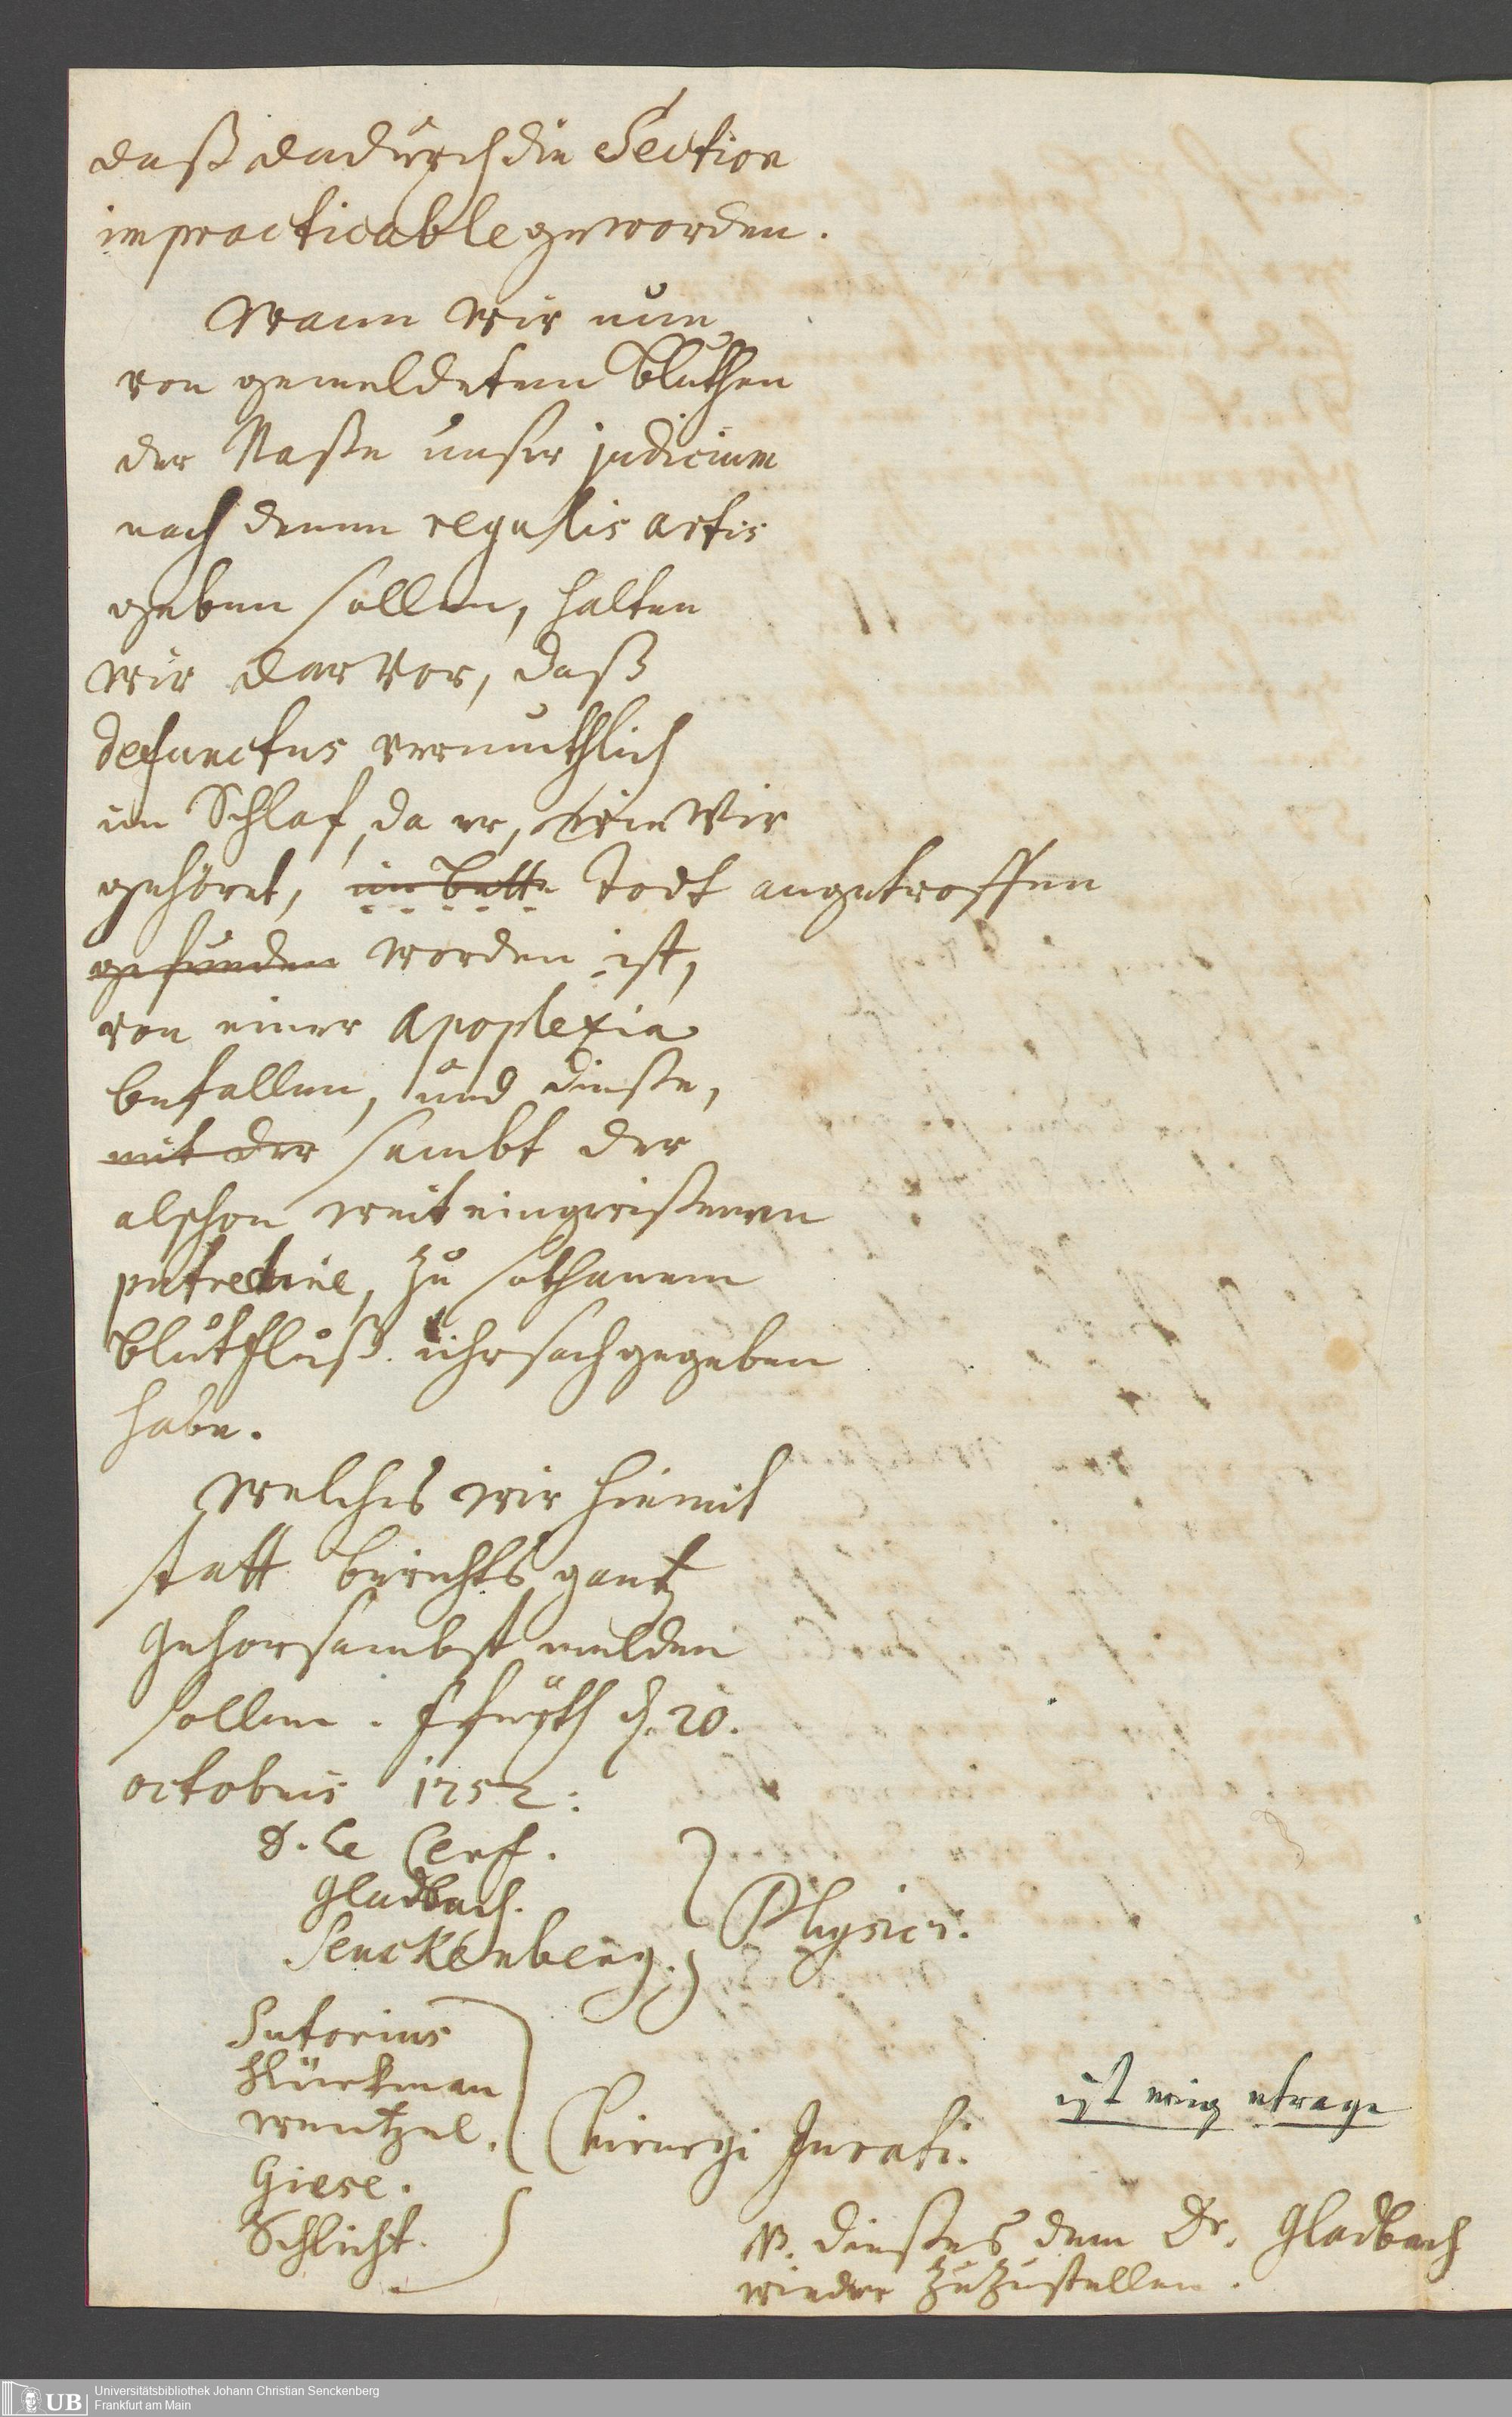 daß dadurch die Section
impracticable geworden.
Wann wir nun
von gemeldetem bluthen
der Naße unser judicium
nach denen regulis artis
geben sollen, halten
wir darvor, daß
defunctus vermuthlich
im Schlaf, da er, wie wir
gehöret, im bette todt angetroffen
gefunden worden ist,
von einer apoplexia
befallen, und dieße,
mit der sambt der
alschon weit eingerißenen
putredine, zu sothanem
blutfluß uhrsach gegeben
habe.
Welches wir hiemit
statt berichts gantz
gehorsambst melden
sollen. Ffurth d. 20.
octobris 1752:
D. Le Cerf.
Gladbach.
Senckenberg.
Physici.
Sutorius
Klückman
Wentzel.
Giese.
Schlicht.
Chirurgi Jurati.
ist
NB. dießes dem Dr. Gladbach
wieder zuzustellen.
UB Universitätsbibliothek Johann Christian Senckenberg
Frankfurt am Main